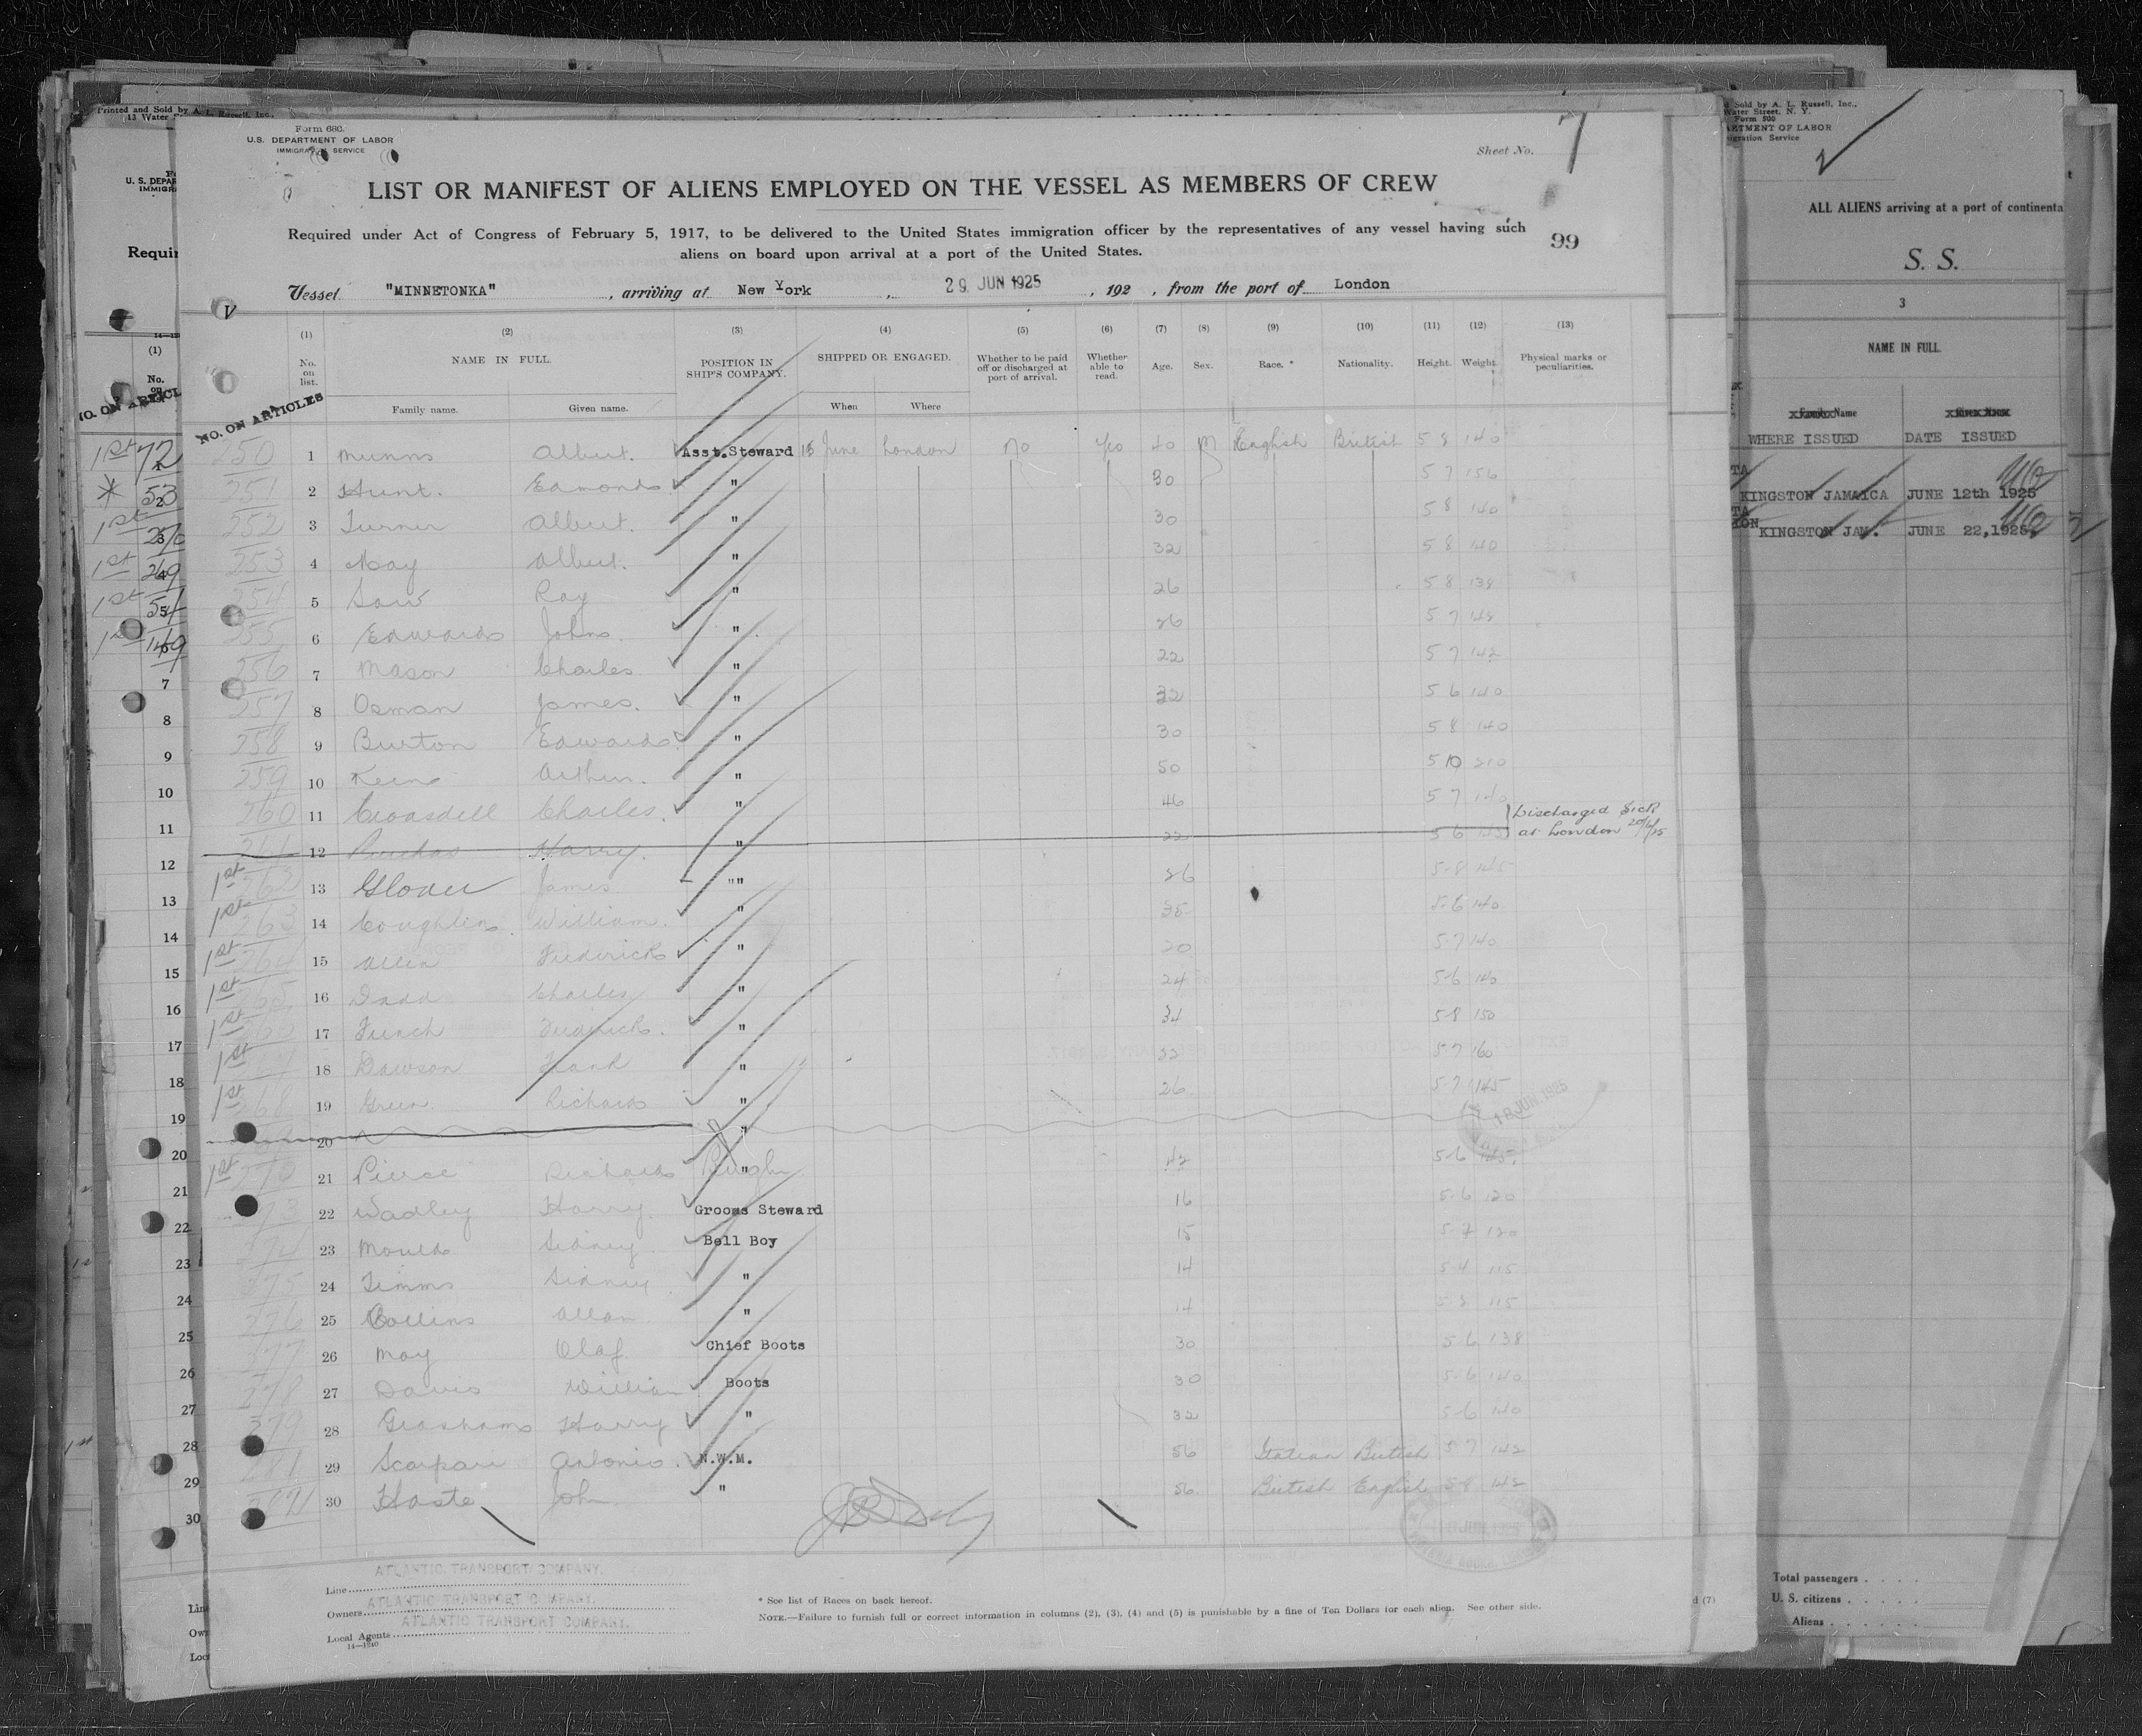 Printed and Sold by A. L. Russell, Inc.,
Form 680.
U.S. DEPARTMENT OF LABOR
IMMIGRATION SERVICE
Sheet No. 7
LIST OR MANIFEST OF ALIENS EMPLOYED ON THE VESSEL AS MEMBERS OF CREW
Required under Act of Congress of February 5, 1917, to be delivered to the United States immigration officer by the representatives of any vessel having such
aliens on board upon arrival at a port of the United States.
99
Vessel "MINNETONKA", arriving at New York, 29 JUN 1925, 192 , from the port of London
(1) (2) (3) (4) (5) (6) (7) (8) (9) (10) (11) (12) (13)
No. on list. NAME IN FULL. POSITION IN SHIP'S COMPANY. SHIPPED OR ENGAGED. Whether to be paid off or discharged at port of arrival. Whether able to read. Age. Sex. Race. * Nationality. Height. Weight. Physical marks or peculiarities.
Family name. Given name. When Where
NO. ON ARTICLES
250 1 Munns Albert. Asst.Steward 15 June London No Yes 40 M English British 5 8 140
251 2 Hunt. Edmond " 30 5 7 156
252 3 Turner Albert. " 30 5 8 140
253 4 May Albert. " 32 5 8 140
254 5 Roy " 26 5 8 138
255 6 Edwards John. " 26 5 7 148
256 7 Mason Charles " 22 5 7 142
257 8 Osman James. " 32 5 6 140
258 9 Burton Edward. " 30 5 8 140
259 10 Keen Arthur. " 50 5 10 210
260 11 Croasdell Charles. " 46 5 7 140
261 12 Harry. " 22 5 6 Discharged Sick
at London 20/6/25
1st 262 13 Glover James " " 26 5-8 145
1st 263 14 Coughlin. William. " 35 5-6 140
1st 264 15 Allen Frederick " 20 5-7 140
1st 265 16 Dadd Charles " 24 5-6 140
1st 17 French Frederick. " 34 5-8 150
1st 18 Dawson Frank " 32 5-7 160
1st 268 19 Green Richard " 26 5-7 145
20 "
1st 270 21 Pierce Richard " 42 5-6 145.
273 22 Wadley Harry. Grooms Steward 16 5-6 120
274 23 Mould Sidney Bell Boy 15 5-7 120
275 24 Timms Sidney " 14 5 4 115
276 25 Collins Allan " 14 5 3 115
277 26 May Olaf Chief Boots 30 5 6 138
278 27 Davis William Boots 30 5-6 140
279 28 Harry " 32 5 6 140
281 29 Scarpari Antonio. N.W.M. 56 Italian British 5 7 142
30 Haste John " 56 British English 5 8 142
18 JUN 1925
Line ATLANTIC TRANSPORT COMPANY.
Owners ATLANTIC TRANSPORT COMPANY.
Local Agents ATLANTIC TRANSPORT COMPANY.
14—1240
* See list of Races on back hereof.
NOTE.—Failure to furnish full or correct information in columns (2), (3), (4) and (5) is punishable by a fine of Ten Dollars for each alien. See other side.
d Sold by A. L. Russell, Inc.,
Water Street, N. Y.
Form 500
ARTMENT OF LABOR
igration Service
2
ALL ALIENS arriving at a port of continenta
S. S.
3
NAME IN FULL.
WHERE ISSUED DATE ISSUED
KINGSTON JAMAICA JUNE 12th 1925
KINGSTON JAM. JUNE 22,1925.
Total passengers . . . .
U. S. citizens . . . . .
Aliens . . . . . .
d (7)